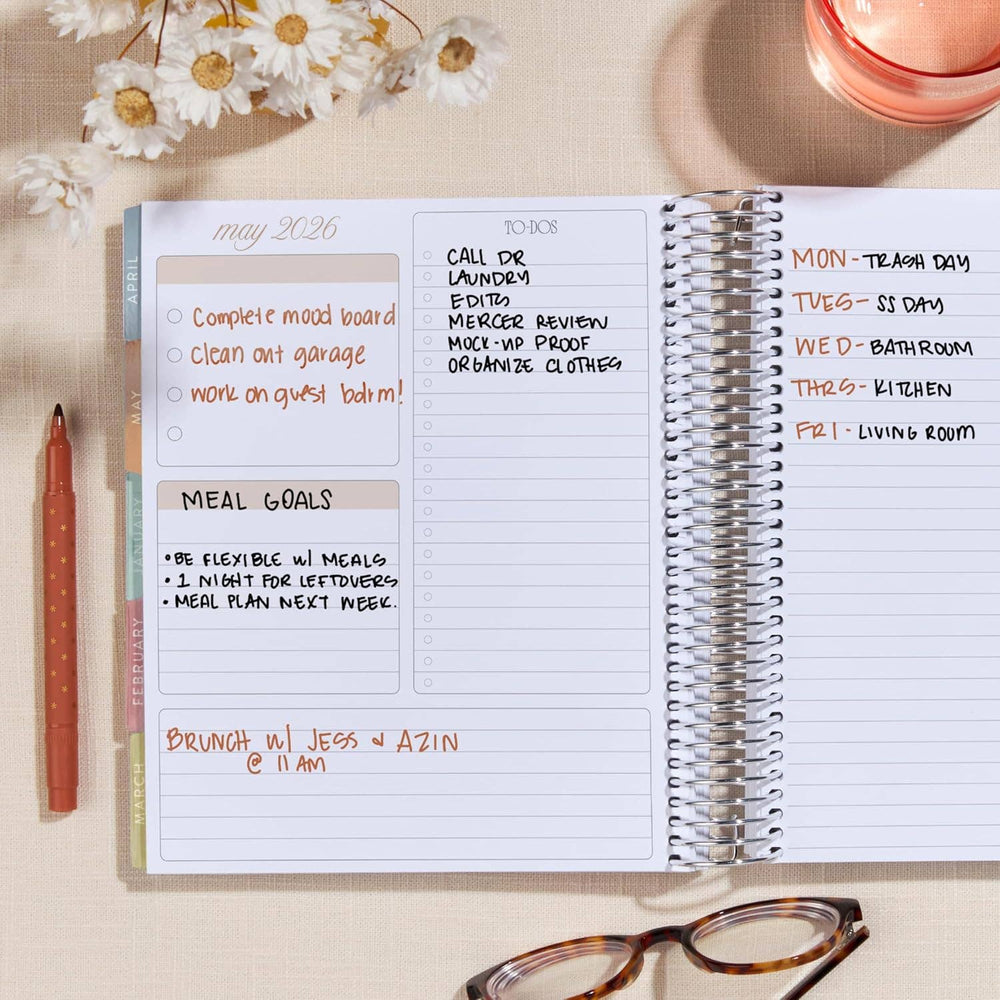 may 2026
Complete mood board
Clean out garage
work on guest bdrm!
MEAL GOALS
•BE FLEXIBLE w/ MEALS
• 1 NIGHT FOR LEFTOVERS
• MEAL PLAN NEXT WEEK.
BRUNCH W/ JESS & AZIN
@ 11 AM
TO-DOS
CALL DR
LAUNDRY
EDITS
MERCER REVIEW
MOCK-UP PROOF
ORGANIZE CLOTHES
MON - TRASH DAY
TUES - SS DAY
WED - BATHROOM
THRS - KITCHEN
FRI - LIVING ROOM
APRIL
MAY
JANUARY
FEBRUARY
MARCH